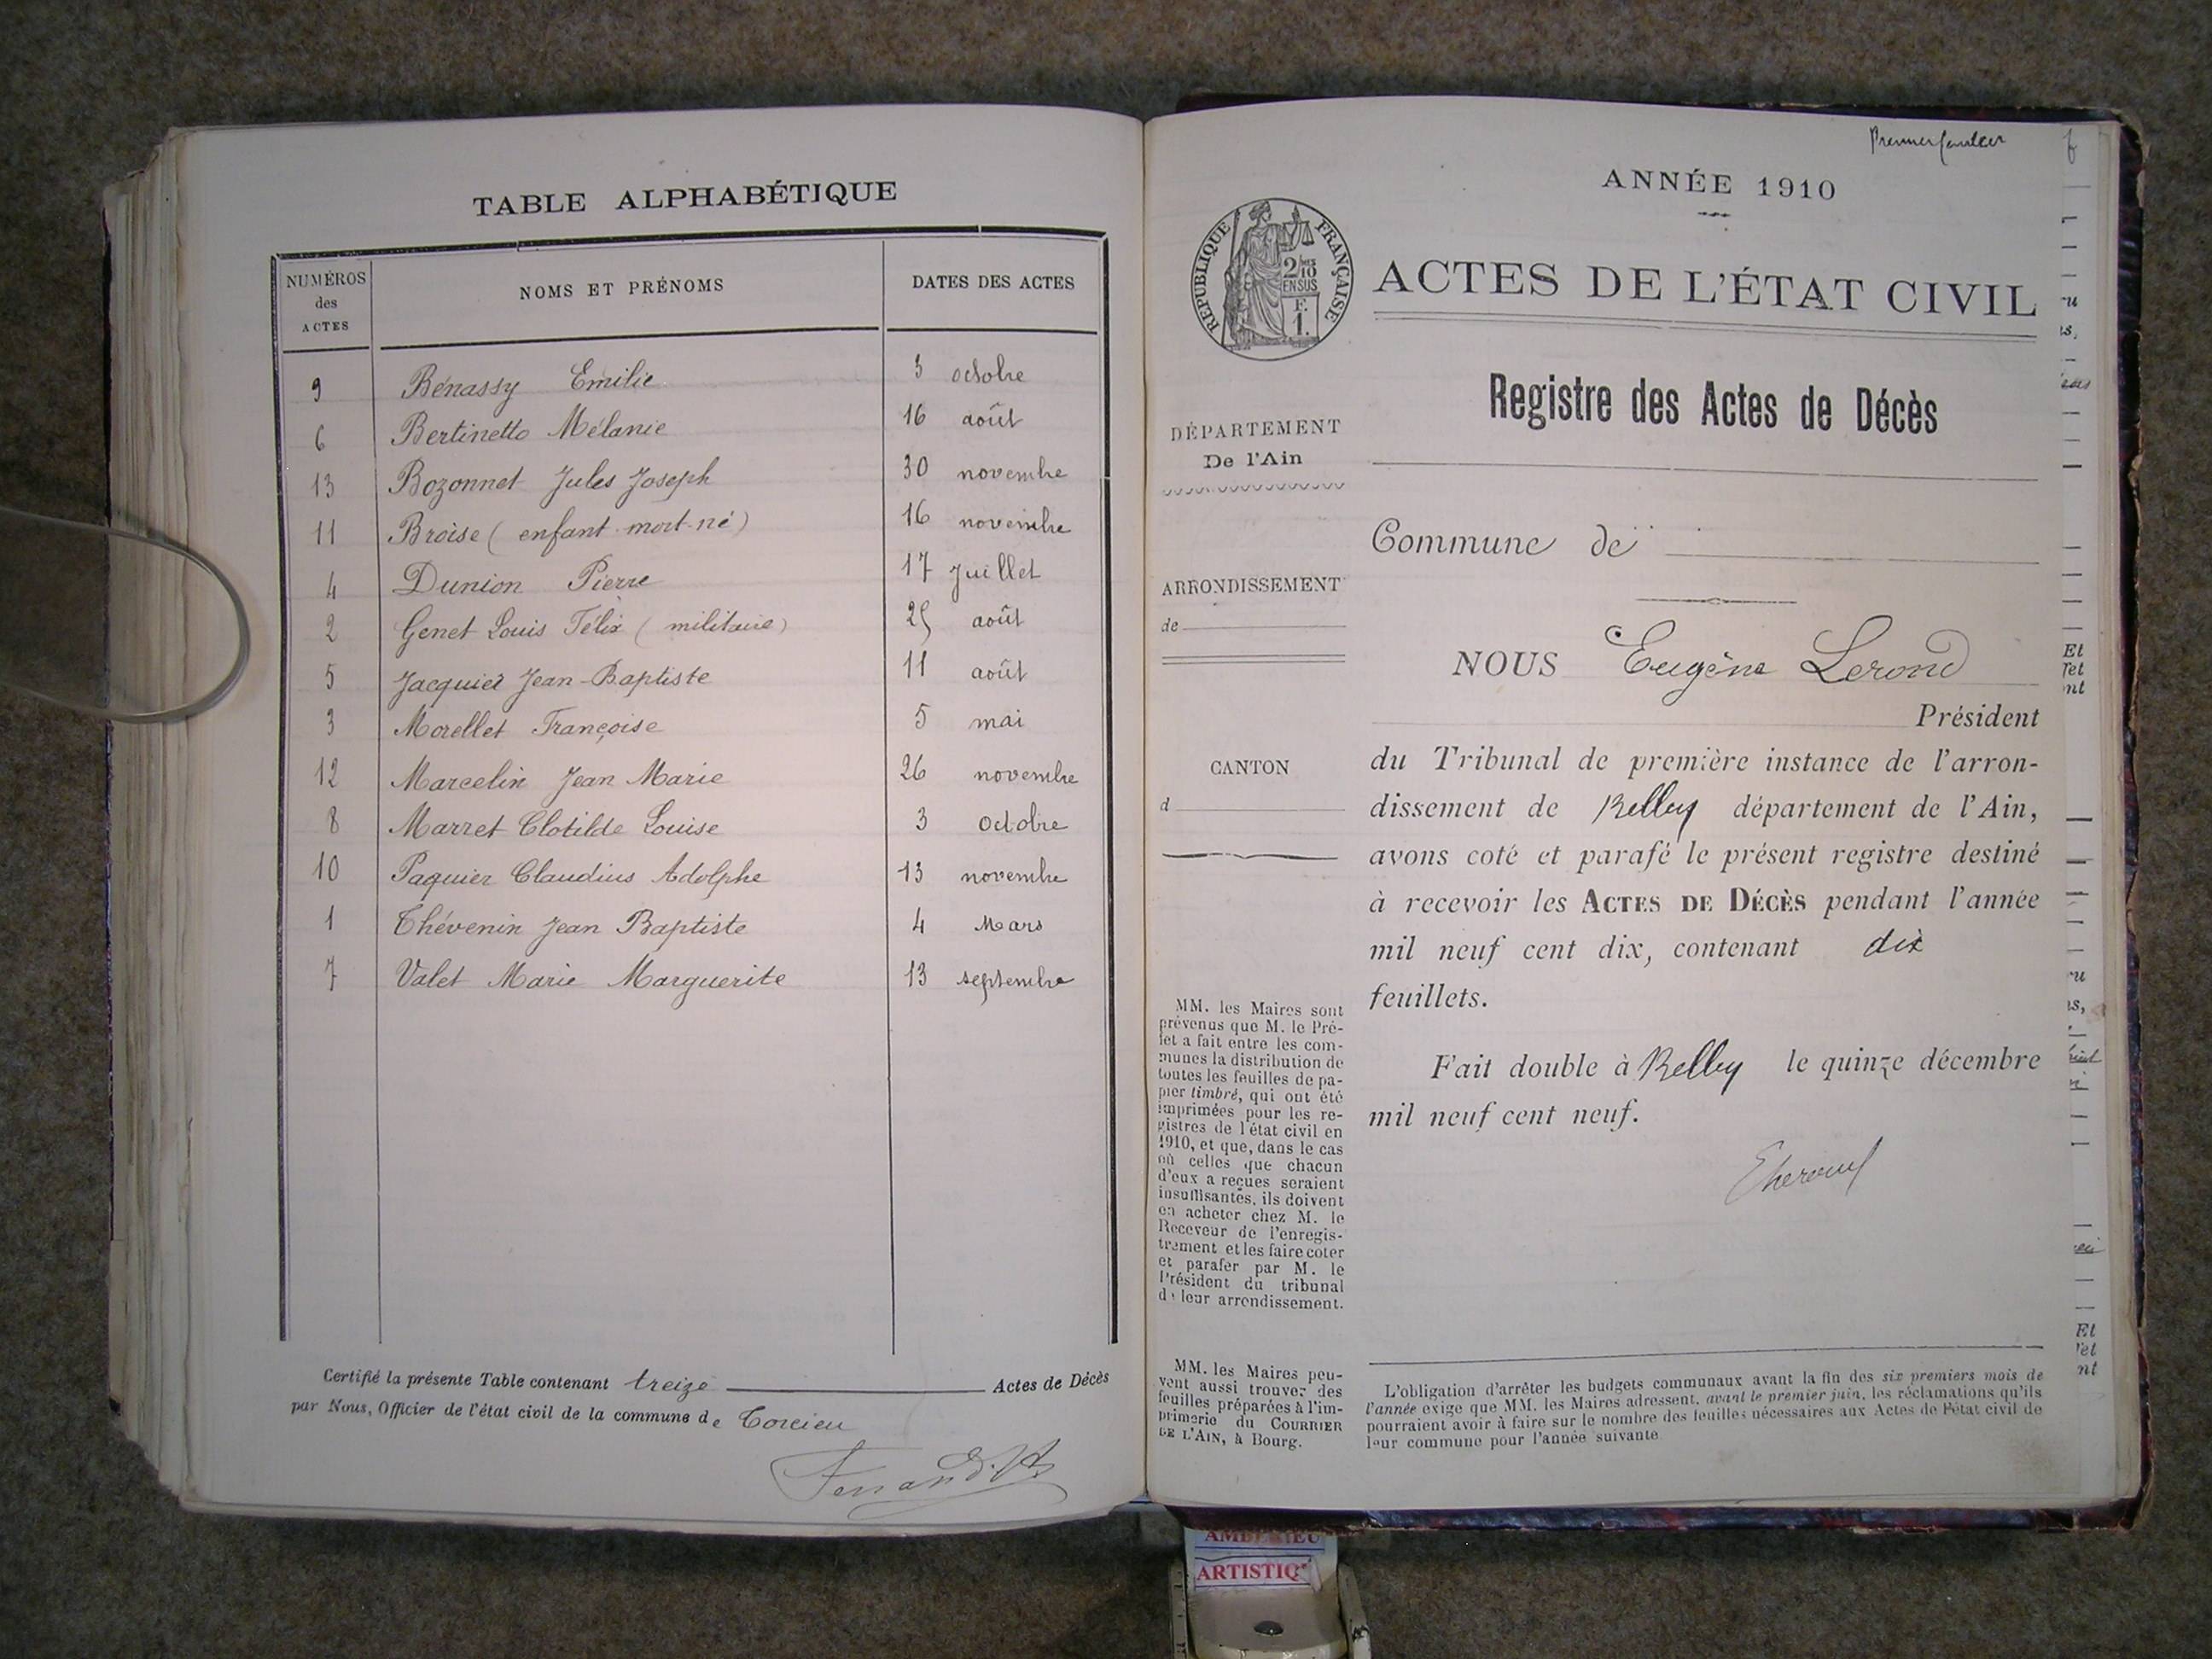 TABLE ALPHABÉTIQUE
NUMÉROS des ACTES NOMS ET PRÉNOMS DATES DES ACTES
9 Bénassy Emilie 3 octobre
6 Bertinetto Mélanie 16 août
13 Bozonnet Jules Joseph 30 novembre
11 Broise (enfant mort-né) 16 novembre
4 Dunion Pierre 17 Juillet
2 Genet Louis Félix (militaire) 25 août
5 Jacquier Jean-Baptiste 11 août
3 Morellet Françoise 5 mai
12 Marcelin Jean Marie 26 novembre
8 Marret Clotilde Louise 3 octobre
10 Paquier Claudius Adolphe 13 novembre
1 Thévenin Jean Baptiste 4 Mars
7 Valet Marie Marguerite 13 septembre
Certifié la présente Table contenant treize Actes de Décès
par Nous, Officier de l'état civil de la commune de Torcieu
Premier feuillet
ANNÉE 1910
RÉPUBLIQUE FRANÇAISE
2/10
EN SUS
F.
1.
ACTES DE L'ÉTAT CIVIL
Registre des Actes de Décès
DÉPARTEMENT
De l'Ain
Commune de
ARRONDISSEMENT
de
NOUS Eugène Lerond
Président
CANTON
d
du Tribunal de première instance de l'arron-
dissement de Belley département de l'Ain,
avons coté et parafé le présent registre destiné
à recevoir les ACTES DE DÉCÈS pendant l'année
mil neuf cent dix, contenant dix
feuillets.
Fait double à Belley le quinze décembre
mil neuf cent neuf.
MM. les Maires sont
prévenus que M. le Pré-
fet a fait entre les com-
munes la distribution de
toutes les feuilles de pa-
pier timbré, qui ont été
imprimées pour les re-
gistres de l'état civil en
1910, et que, dans le cas
où celles que chacun
d'eux a reçues seraient
insuffisantes, ils doivent
en acheter chez M. le
Receveur de l'enregis-
trement et les faire coter
et parafer par M. le
Président du tribunal
de leur arrondissement.
MM. les Maires peu-
vent aussi trouver des
feuilles préparées à l'im-
primerie du COURRIER
DE L'AIN, à Bourg.
L'obligation d'arrêter les budgets communaux avant la fin des six premiers mois de
l'année exige que MM. les Maires adressent, avant le premier juin, les réclamations qu'ils
pourraient avoir à faire sur le nombre des feuilles nécessaires aux Actes de l'état civil de
leur commune pour l'année suivante
AMBERIEU
ARTISTIQ